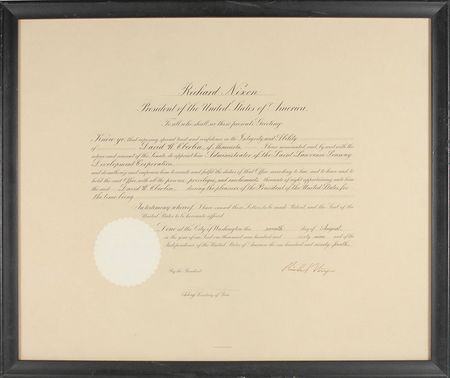 Richard Nixon
President of the United States of America.
To all who shall see these presents, Greeting:
Know ye, that reposing special trust and confidence in the Integrity and Ability
of David W. Oberlin, of Minnesota, I have nominated, and, by and with the
advice and consent of the Senate, do appoint him Administrator of the Saint Lawrence Seaway
Development Corporation,
and do authorize and empower him to execute and fulfil the duties of that Office according to law, and to have and to
hold the said Office, with all the powers, privileges, and emoluments thereunto of right appertaining, unto him
the said David W. Oberlin, during the pleasure of the President of the United States for
the time being.
In testimony whereof, I have caused these Letters to be made Patent, and the Seal of the
United States to be hereunto affixed.
Done at the City of Washington this day of August,
in the year of our Lord one thousand nine hundred and sixty-nine, and of the
Independence of the United States of America the one hundred and ninety-fourth.
By the President:
Richard Nixon
Acting Secretary of State.